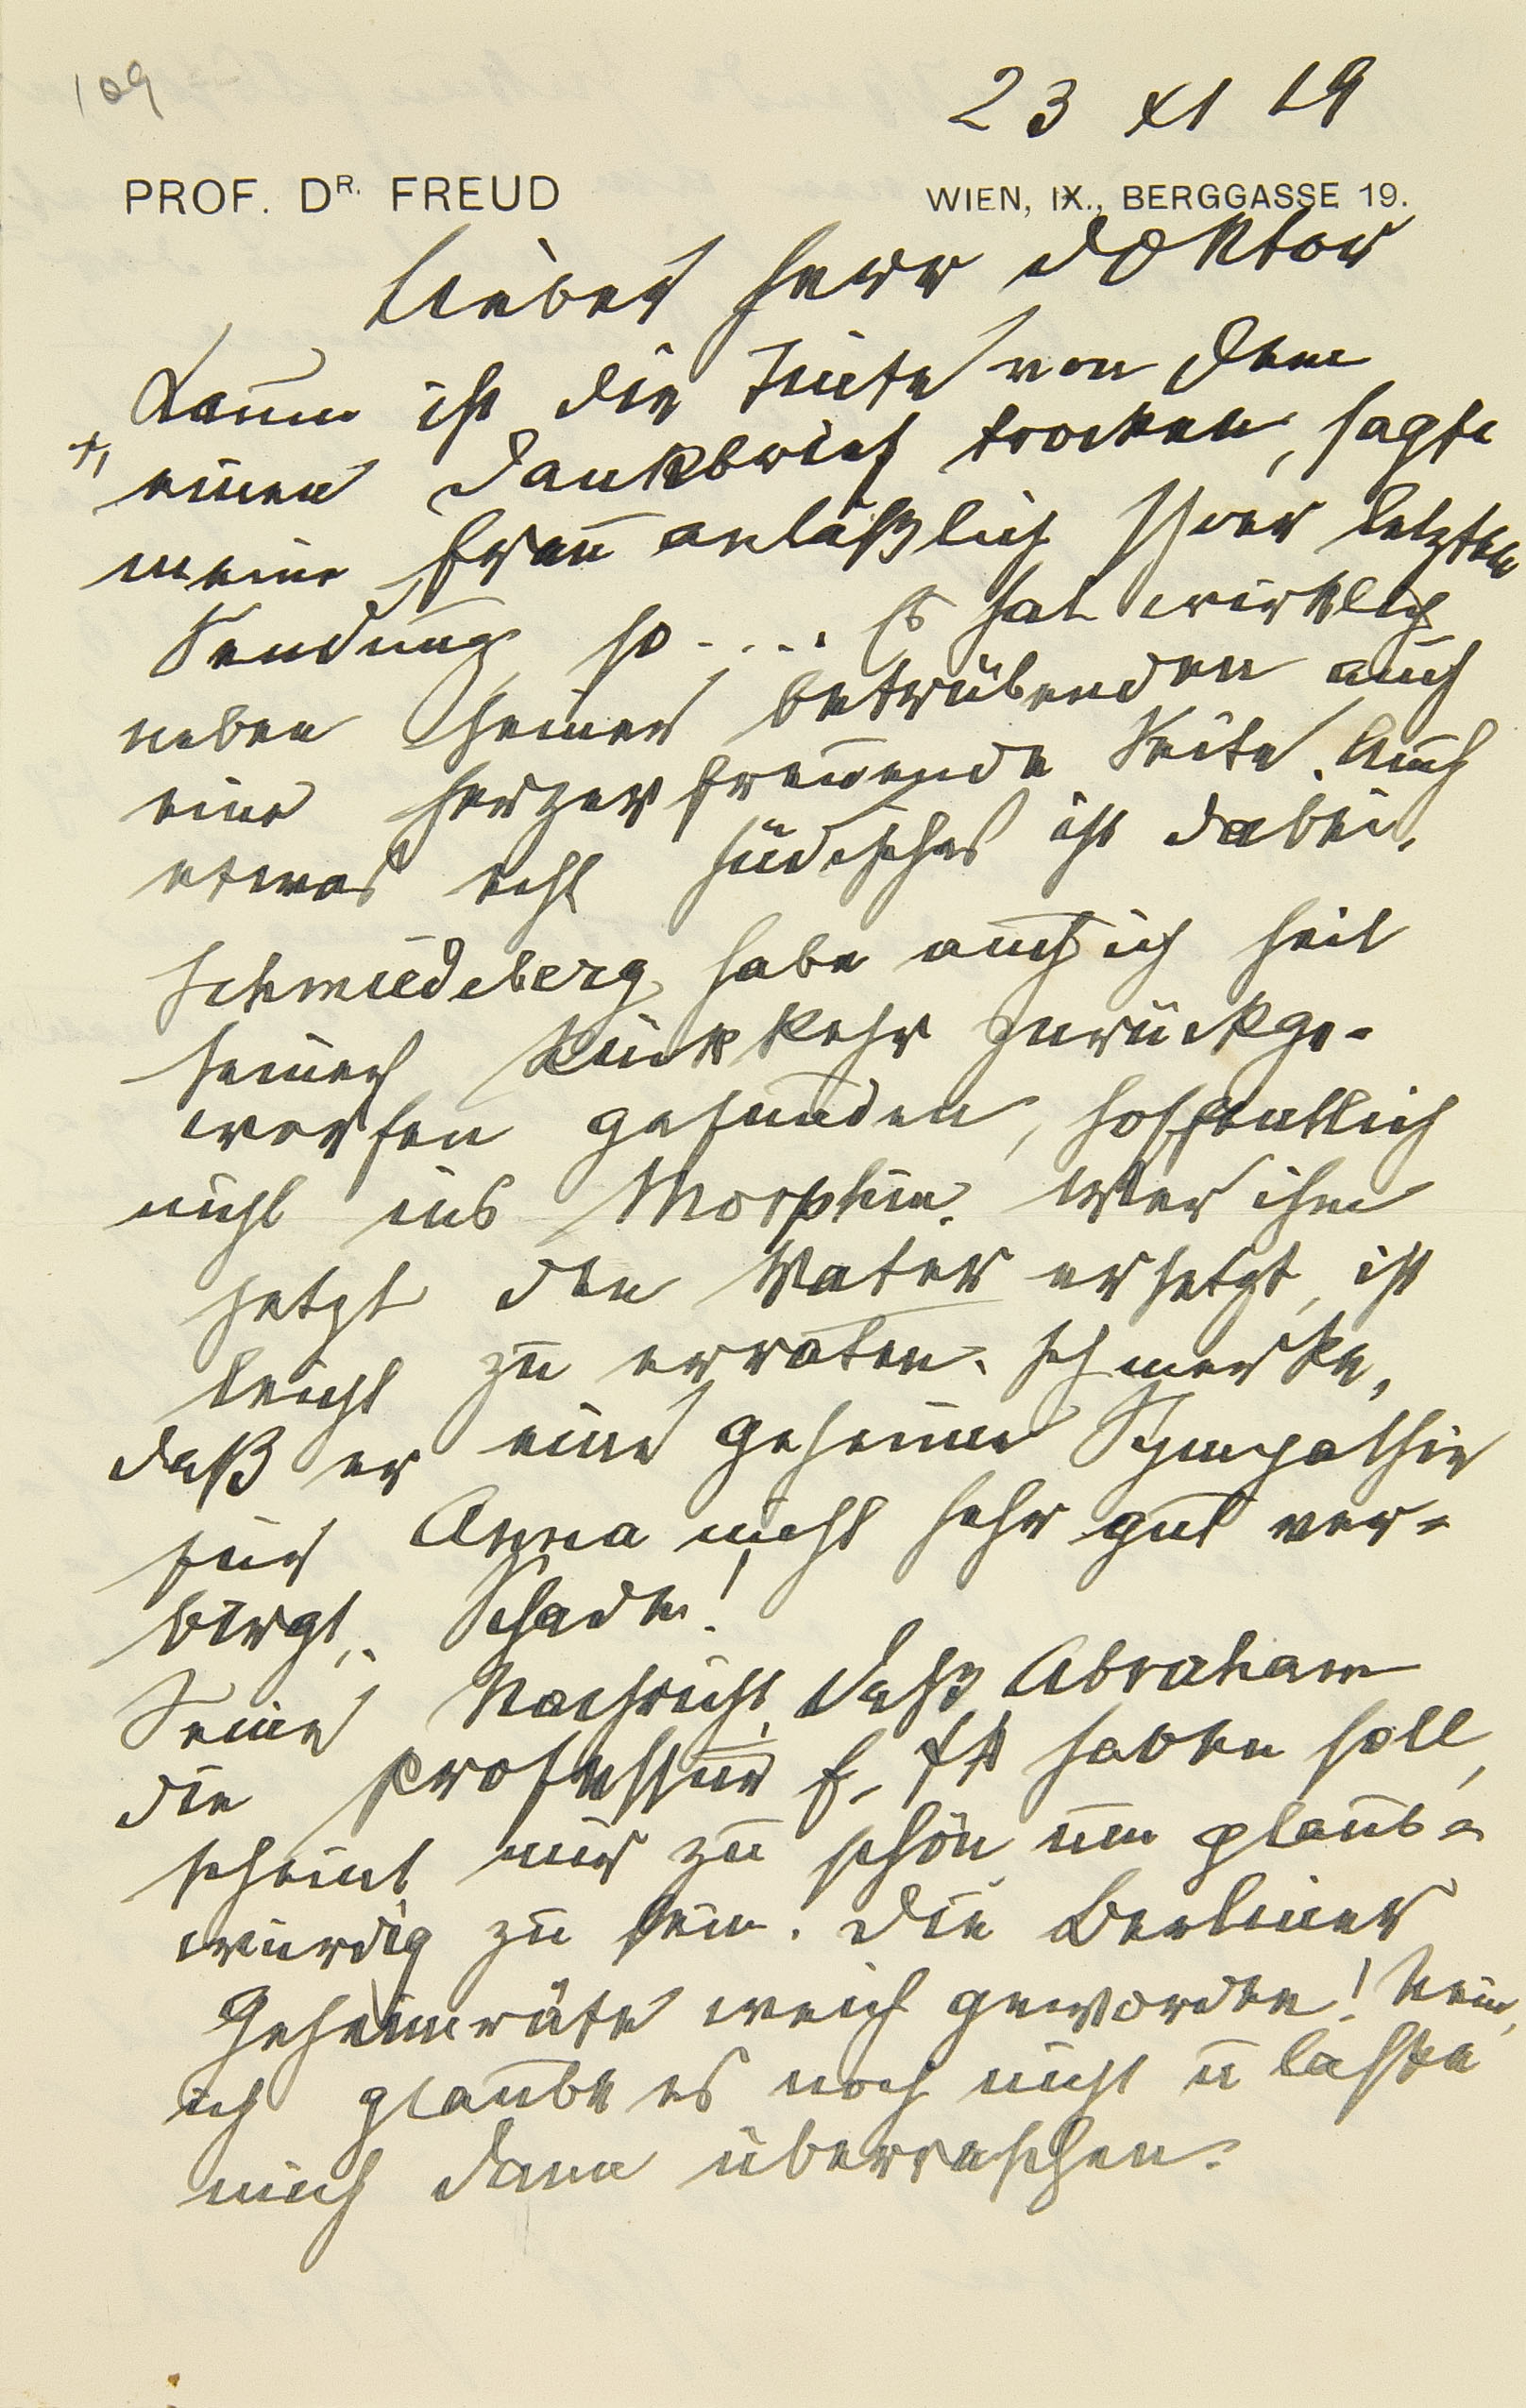 109
23 XI 19
PROF. DR. FREUD
WIEN, IX., BERGGASSE 19.
Lieber Herr Doktor
Kaum ist die Tinte von dem
einen Dankbrief trocken, sagte
meine Frau anläßlich Ihrer letzten
Sendung, so .... Es hat wirklich
neben seiner betrübenden auch
eine herzerfreuende Seite. Auch
etwas echt jüdisches ist dabei.
Schmiedeberg habe auch ich seit
seiner Rückkehr zurückge-
worfen gefunden, hoffentlich
nicht ins Morphin. Wer ihm
jetzt den Vater ersetzt, ist
leicht zu erraten. Ich merke,
daß er eine geheime Sympathie
für Anna nicht sehr gut ver-
birgt. Schade!
Seine Nachricht, daß Abraham
die Professur f. ΨΑ haben soll,
scheint mir zu schön um glaub-
würdig zu sein. Die Berliner
Geheimräte weich geworden! Nein,
ich glaube es noch nicht u lasse
mich dann überraschen.